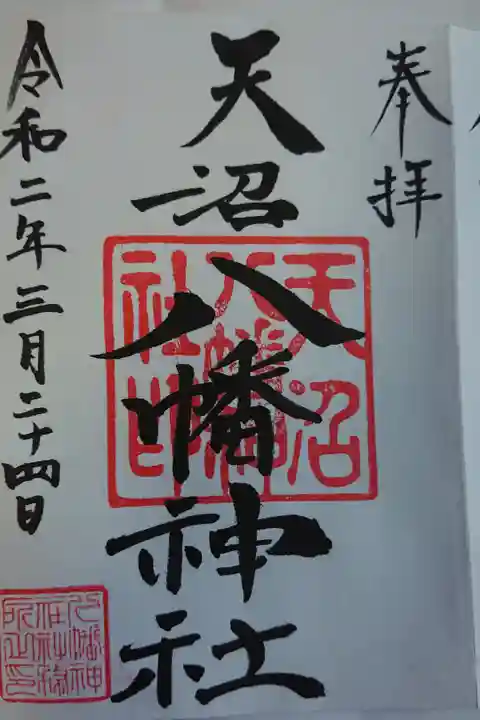 奉拝
天沼八幡神社
天沼
八幡神
社印
令和二年三月二十四日